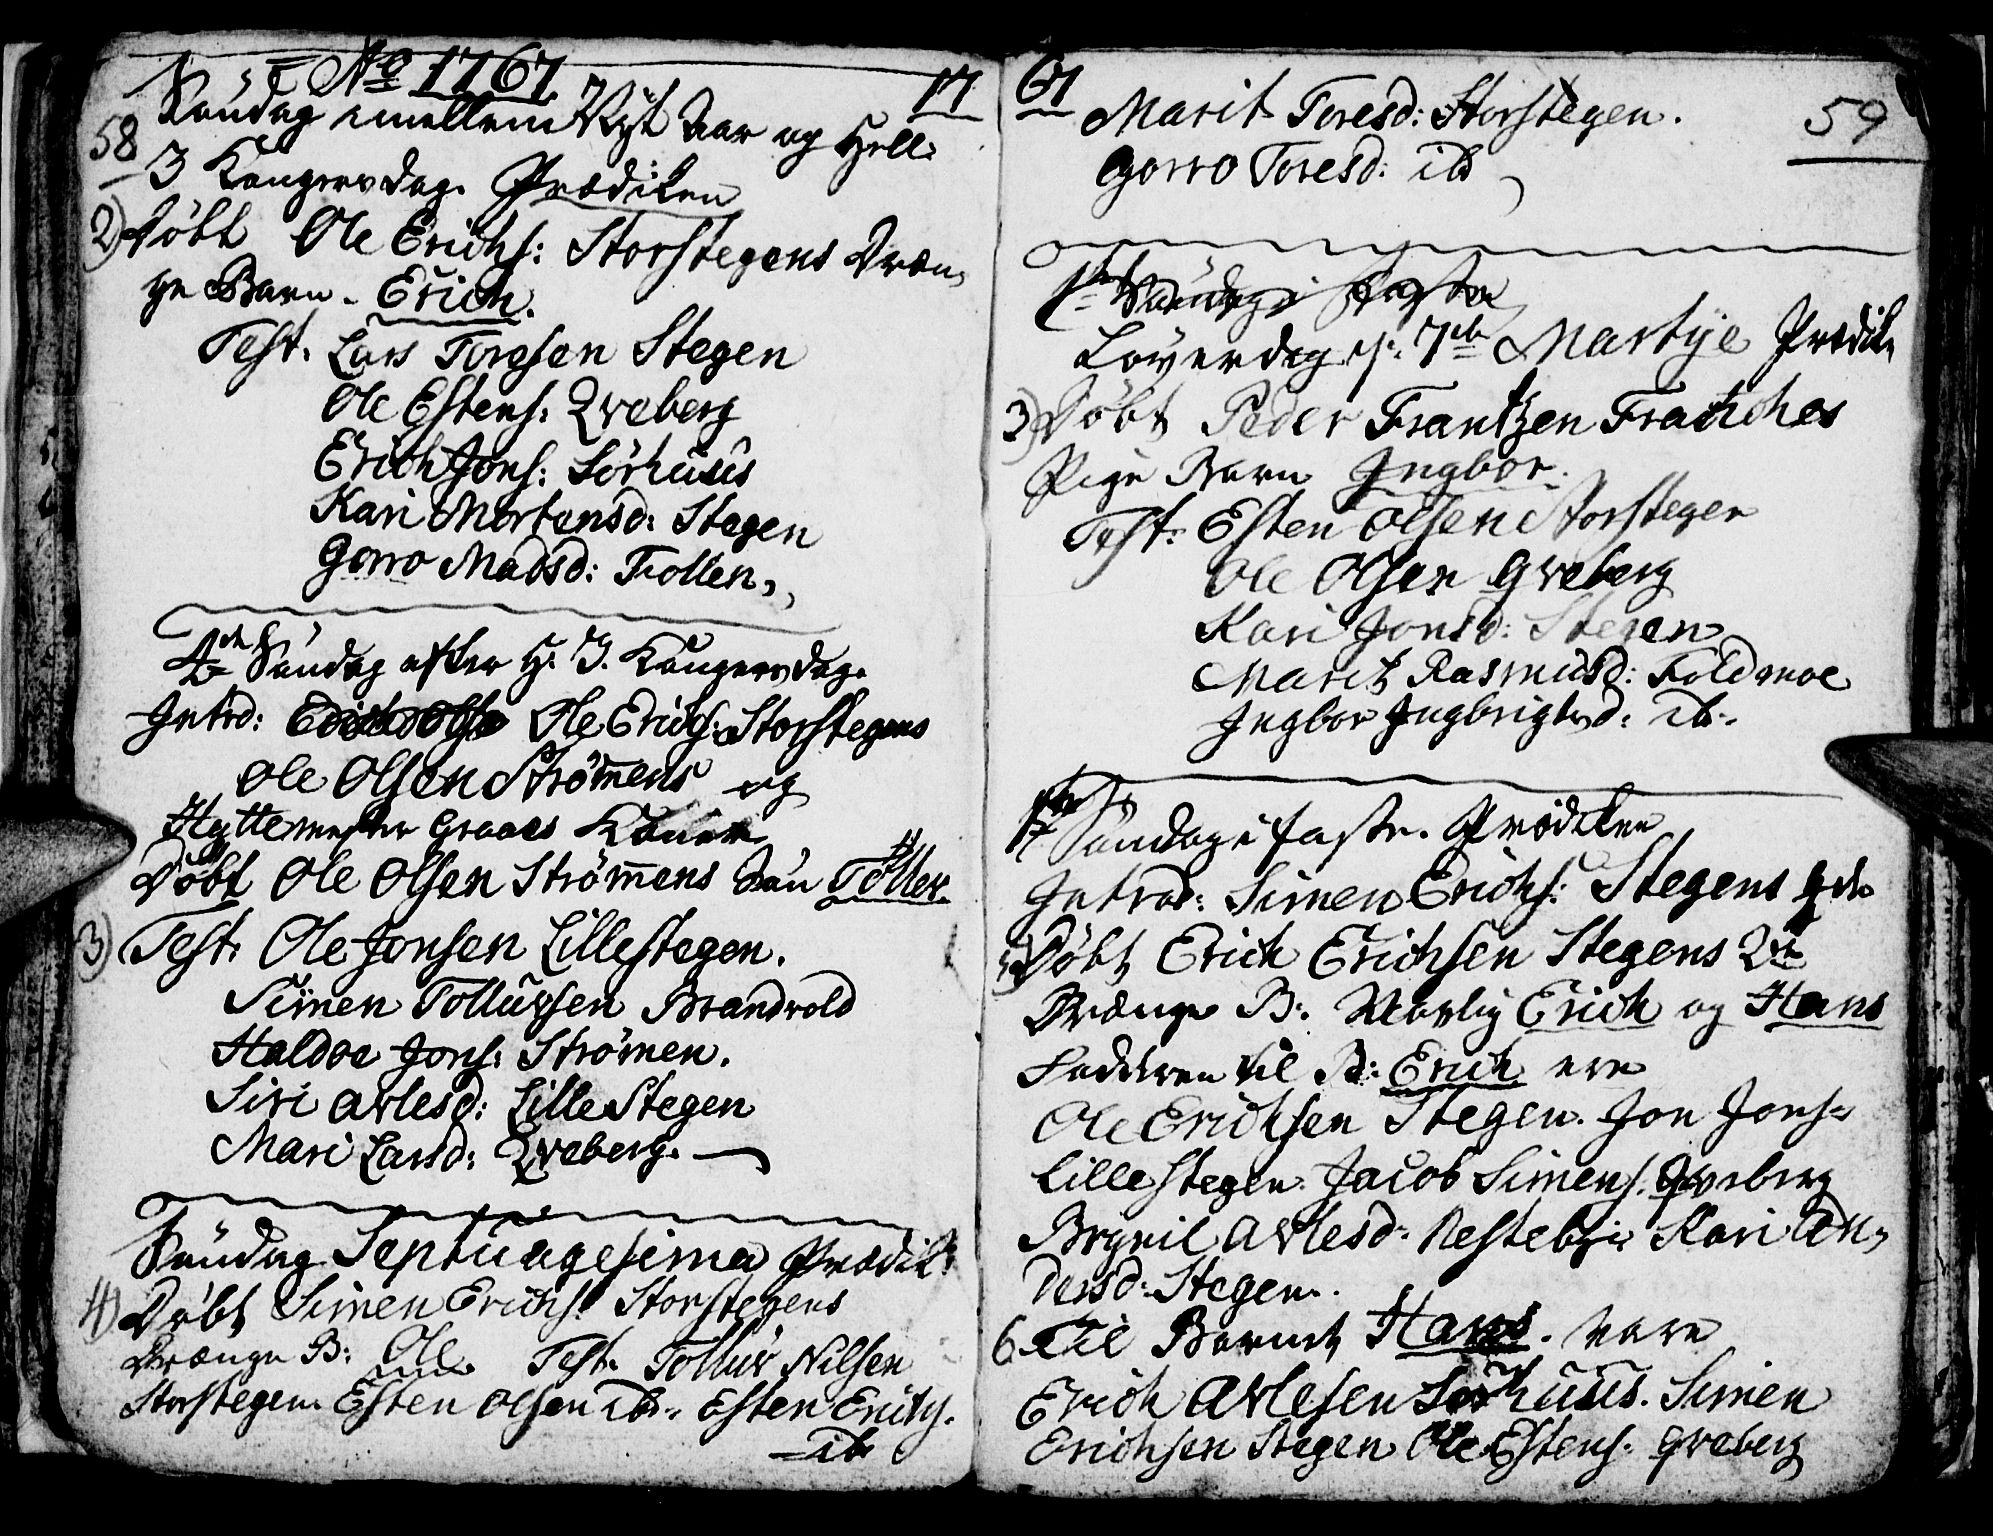 No 1767. 17
58 Søndag imellem Nyt Aar og Hell:
3 Kongersdag. Prædiken
2) Døbt Ole Erichs: Storstegens Dræn,
ge Barn. Erich.
Test. Lars Toresen Stegen
Ole Estens: Qveberg
Erich Jons: Sørhuus
Kari Mortensd: Stegen
Gorro Madsd: Tollen,
4de Søndag after H. 3. Kongersdag.
Introd: Ole Erichs: Storstegens
Ole Olsen Strømens og
Hyttemester Graaes Koner
Døbt Ole Olsen Strømens Søn Toller.
3) Test. Ole Jonsen Lillestegen.
Simen Tollufsen Brandvold
Haldoe Jons: Strømen.
Siri Arlesd: LilleStegen
Mari Larsd: Qveberg.
Søndag Septuagesima Prædik:
4) Døbt Simen Erichs: Storstegens
Drænge B: Ole. Test. Tolluf Nilsen
Storstegen. Esten Olsen ib. Esten Erichs.
ib
67
Marit Toresd: Storstegen. 59
Gorro Toresd: ib
1ste Søndag i Faste
Løverdag d: 7de Martye Prædik
3) Døbt Peder Frantzen Fraschos
Pige Barn Ingbor.
Test: Esten Olsen Storstegen
Ole Olsen Qveberg
Kari Jonsd: Stegen
Marit Rasmusd: Foldmoe
Ingbor Ingbrigtsd: ib.
1ste Søndag i faste. Prædiken
Introd: Simen Erichs: Stegens
5) Døbt Erich Erichsen Stegens 2de
Drænge B: Navnlig Erich og Hans
Fadderne til B: Erich ere
Ole Erichsen Stegen. Jon Jons:
Lillestegen. Jacob Simens. Qveberg
Brynil Arlesd: Kari An,
dersd: Stegen.
6 Til Barnet Hans. vare
Erich Arlesen Sørhuus. Simen
Erichsen Stegen Ole Estens. Qveberg